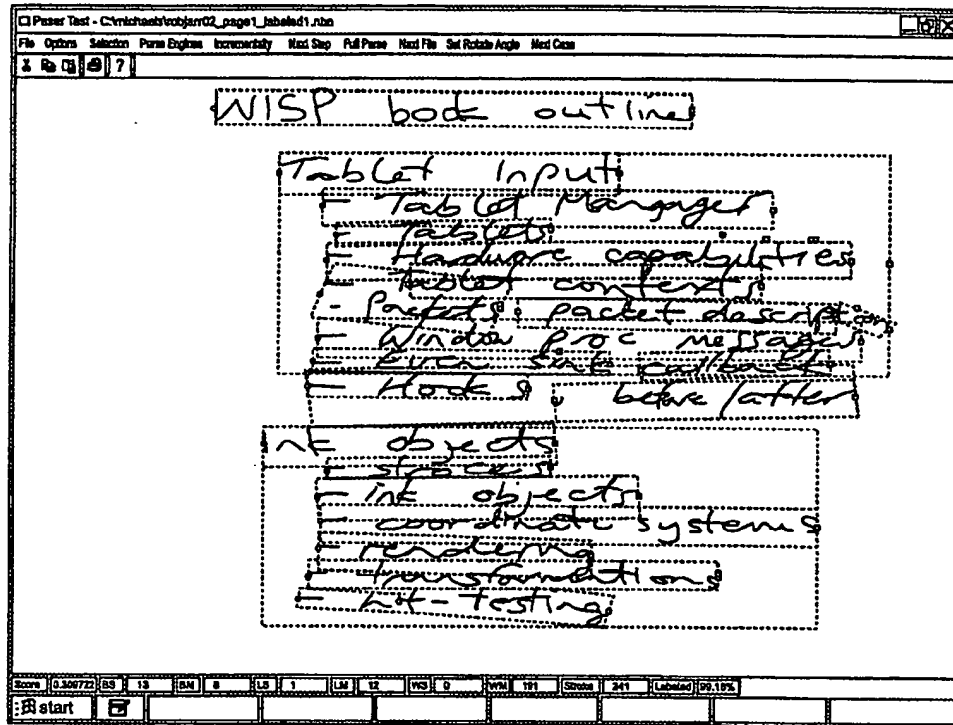 Paser Test - C:\michaels\robjarr02_page1_labeled1.nbn
File Options Selection Parse Engines Incrementally Next Step Full Parse Next File Set Rotate Angle Next Case
?
WISP book outline
Tablet Input
- Tablet Mangager
- Tablets
- Hardware capabilities
- Tablet contexts
- Packets, packet description
- Window Proc messages
- Even sink callback
- Hooks before/after
Ink objects
- strokes
- ink objects
- coordinate systems
- rendering
- transformations
- hit-testing
Score 0.309722 BS 13 BM 8 LS 1 LM 12 WS 0 WM 191 Stroke 241 Labeled 99.16%
start